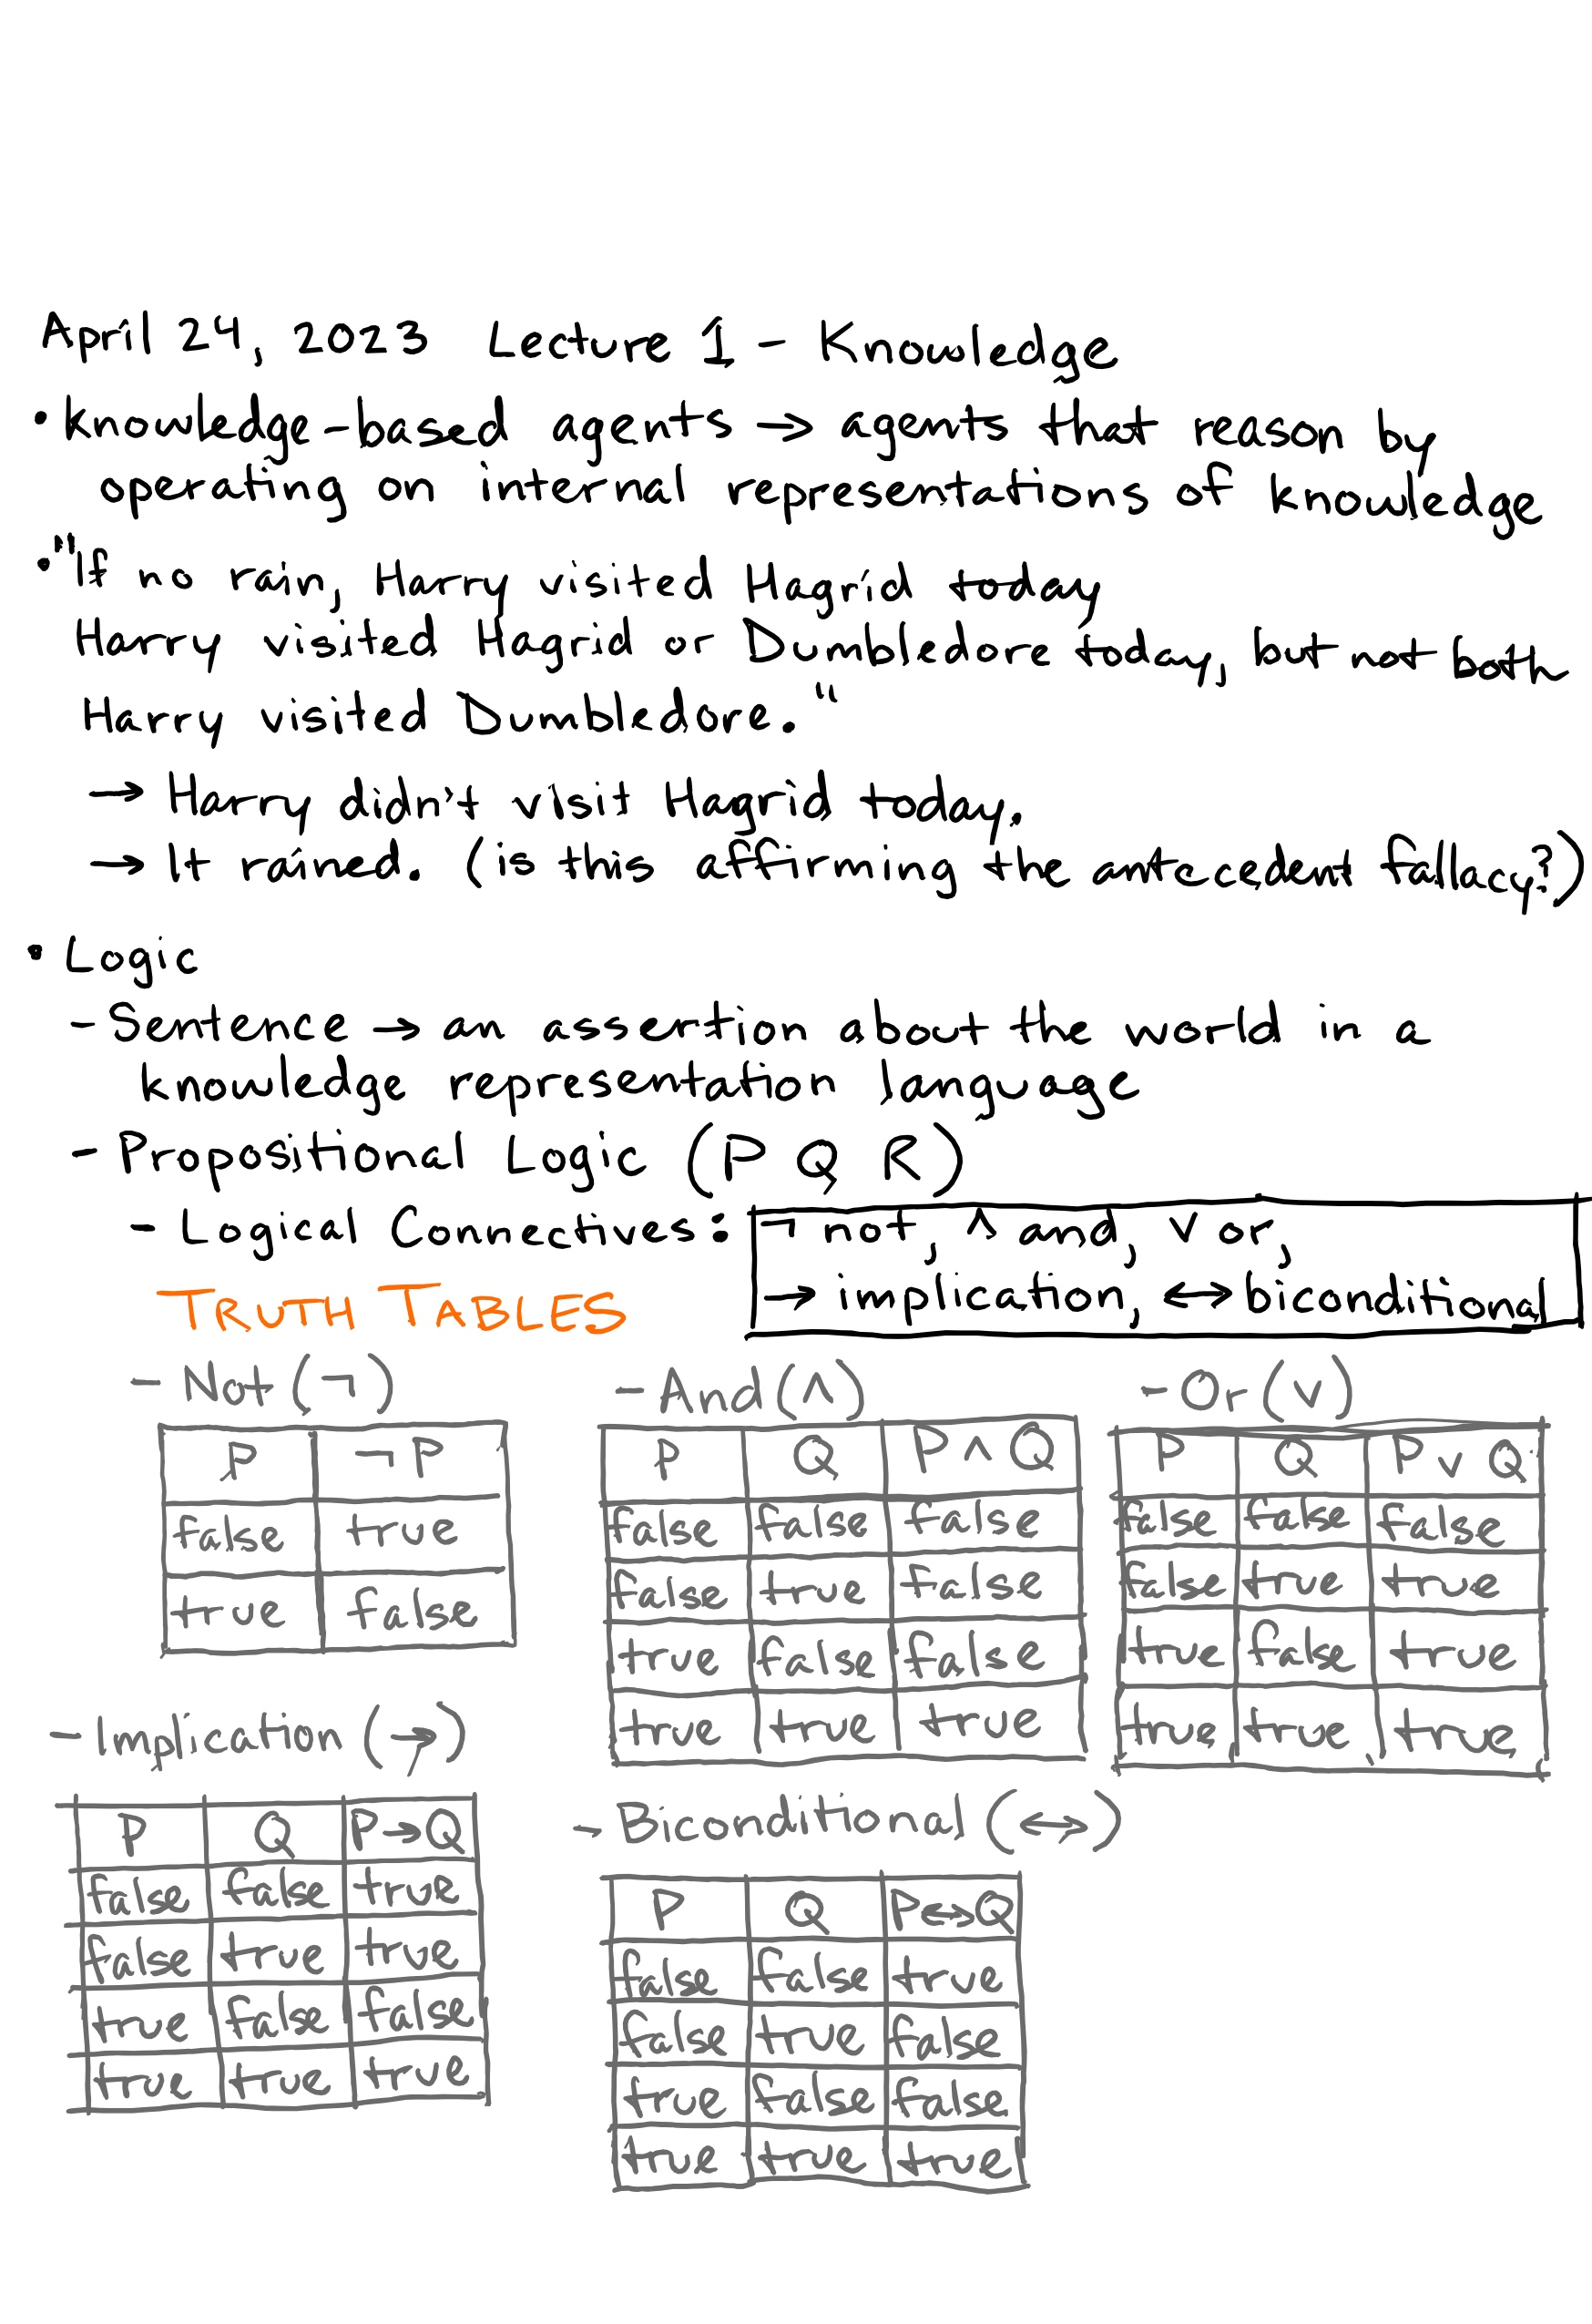 April 24, 2023 Lecture 1 - Knowledge
• knowledge-based agents → agents that reason by
operating on internal representations of knowledge
• "If no rain, Harry visited Hagrid today
Harry visited Hagrid or Dumbledore today, but not both
Harry visited Dumbledore."
→ Harry didn't visit Hagrid today.
→ It rained. (is this affirming the antecedent fallacy?)
• Logic
- Sentence → an assertion about the world in a
knowledge representation language
- Propositional Logic (P Q R)
- Logical Connectives: ¬ not, ∧ and, ∨ or,
→ implication, ↔ biconditional
TRUTH TABLES
- Not (¬)
P ¬P
false true
true false
- And (∧)
P Q P ∧ Q
false false false
false true false
true false false
true true true
- Or (∨)
P Q P ∨ Q
false false false
false true true
true false true
true true true
- Implication (→)
P Q P→Q
false false true
false true true
true false false
true true true
- Biconditional (↔)
P Q P↔Q
false false true
false true false
true false false
true true true